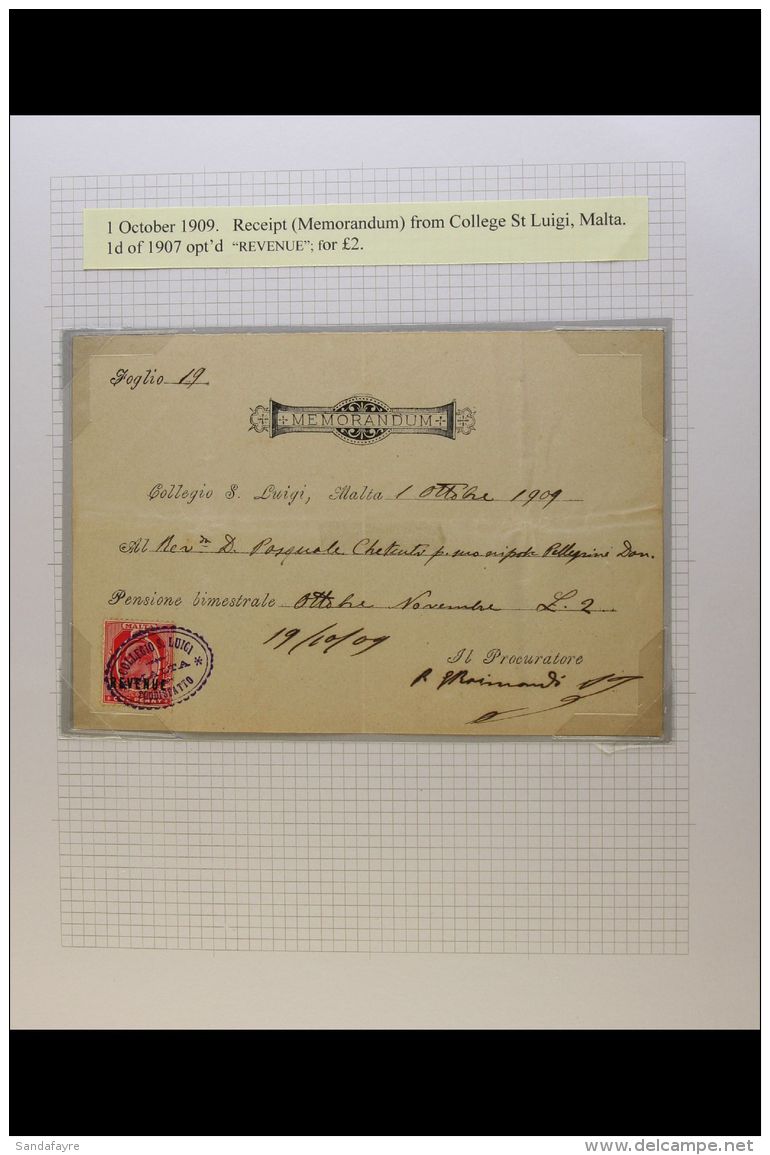 1 October 1909. Receipt (Memorandum) from College St Luigi, Malta.
1d of 1907 opt'd "REVENUE"; for £2.
Foglio 19
MEMORANDUM
Collegio S. Luigi, Malta 1 Ottobre 1909
Al Rev. D. Pasquale Pellegrini Dom.
Pensione bimestrale Ottobre Novembre L. 2
19/10/09
Il Procuratore
MALTA
COLLEGIO S. LUIGI
MALTA
REVENUE
PENNY
Sandafayre
www.delcampe.net